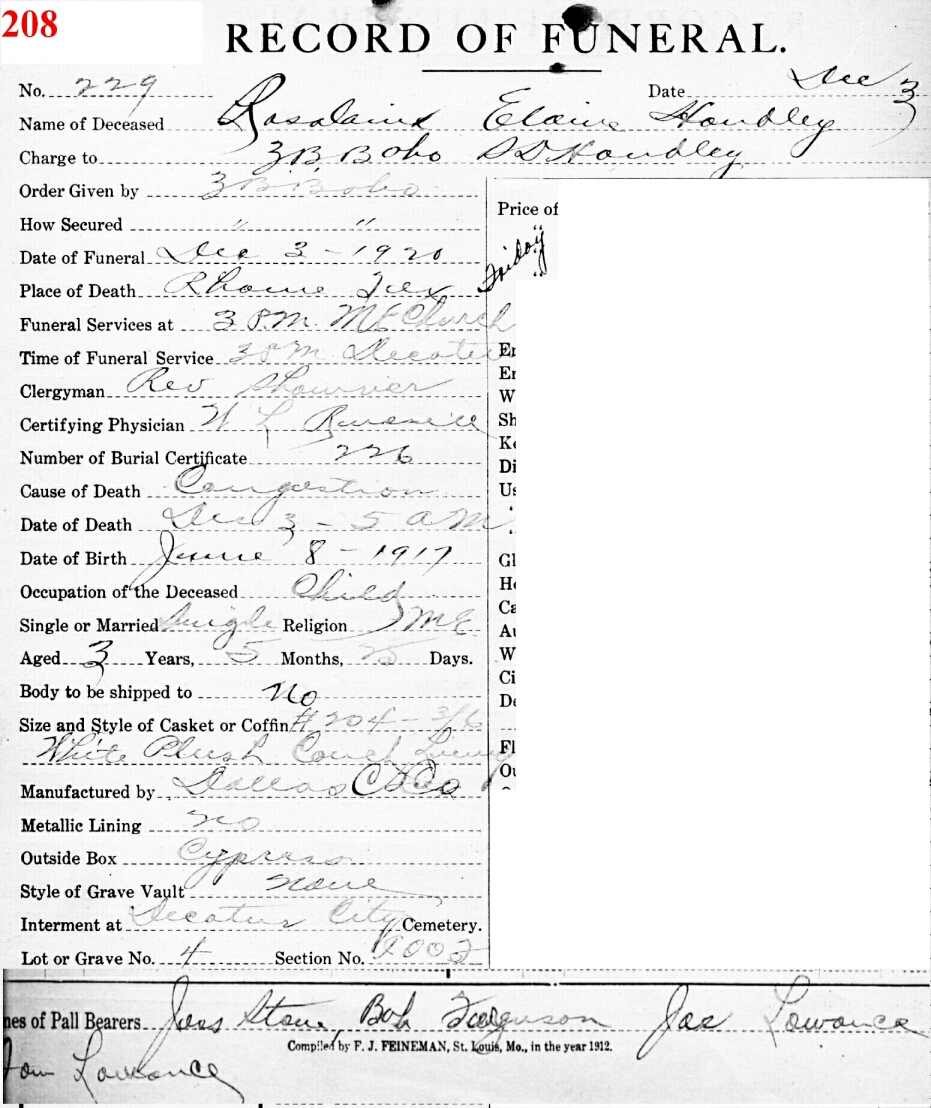 208
RECORD OF FUNERAL.
No. 229 Date Dec 3
Name of Deceased Elaine Handley
Charge to Boho Handley
Order Given by Boho
How Secured " "
Date of Funeral Dec 3 - 1920
Place of Death Rhome Tex
Funeral Services at 3 P.M. ME Church
Time of Funeral Service 3 PM Decatur
Clergyman Rev
Certifying Physician W L
Number of Burial Certificate 226
Cause of Death Congestion
Date of Death Dec 3 - 5 a M
Date of Birth June 8 - 1917
Occupation of the Deceased Child
Single or Married Single Religion ME
Aged 3 Years, 5 Months, 25 Days.
Body to be shipped to No
Size and Style of Casket or Coffin # 204 - 3/6
White Plush Couch Lining
Manufactured by Dallas C & Co
Metallic Lining no
Outside Box Cypress
Style of Grave Vault None
Interment at Decatur City Cemetery.
Lot or Grave No. 4 Section No.
Price of
Friday
Er
Er
W
Sh
Ke
Di
Us
Gl
He
Ca
Au
W
Ci
De
Fl
Ou
nes of Pall Bearers Jess Stone, Bob Ferguson Joe Lowance
Tom Lowrance
Compiled by F. J. FEINEMAN, St. Louis, Mo., in the year 1912.